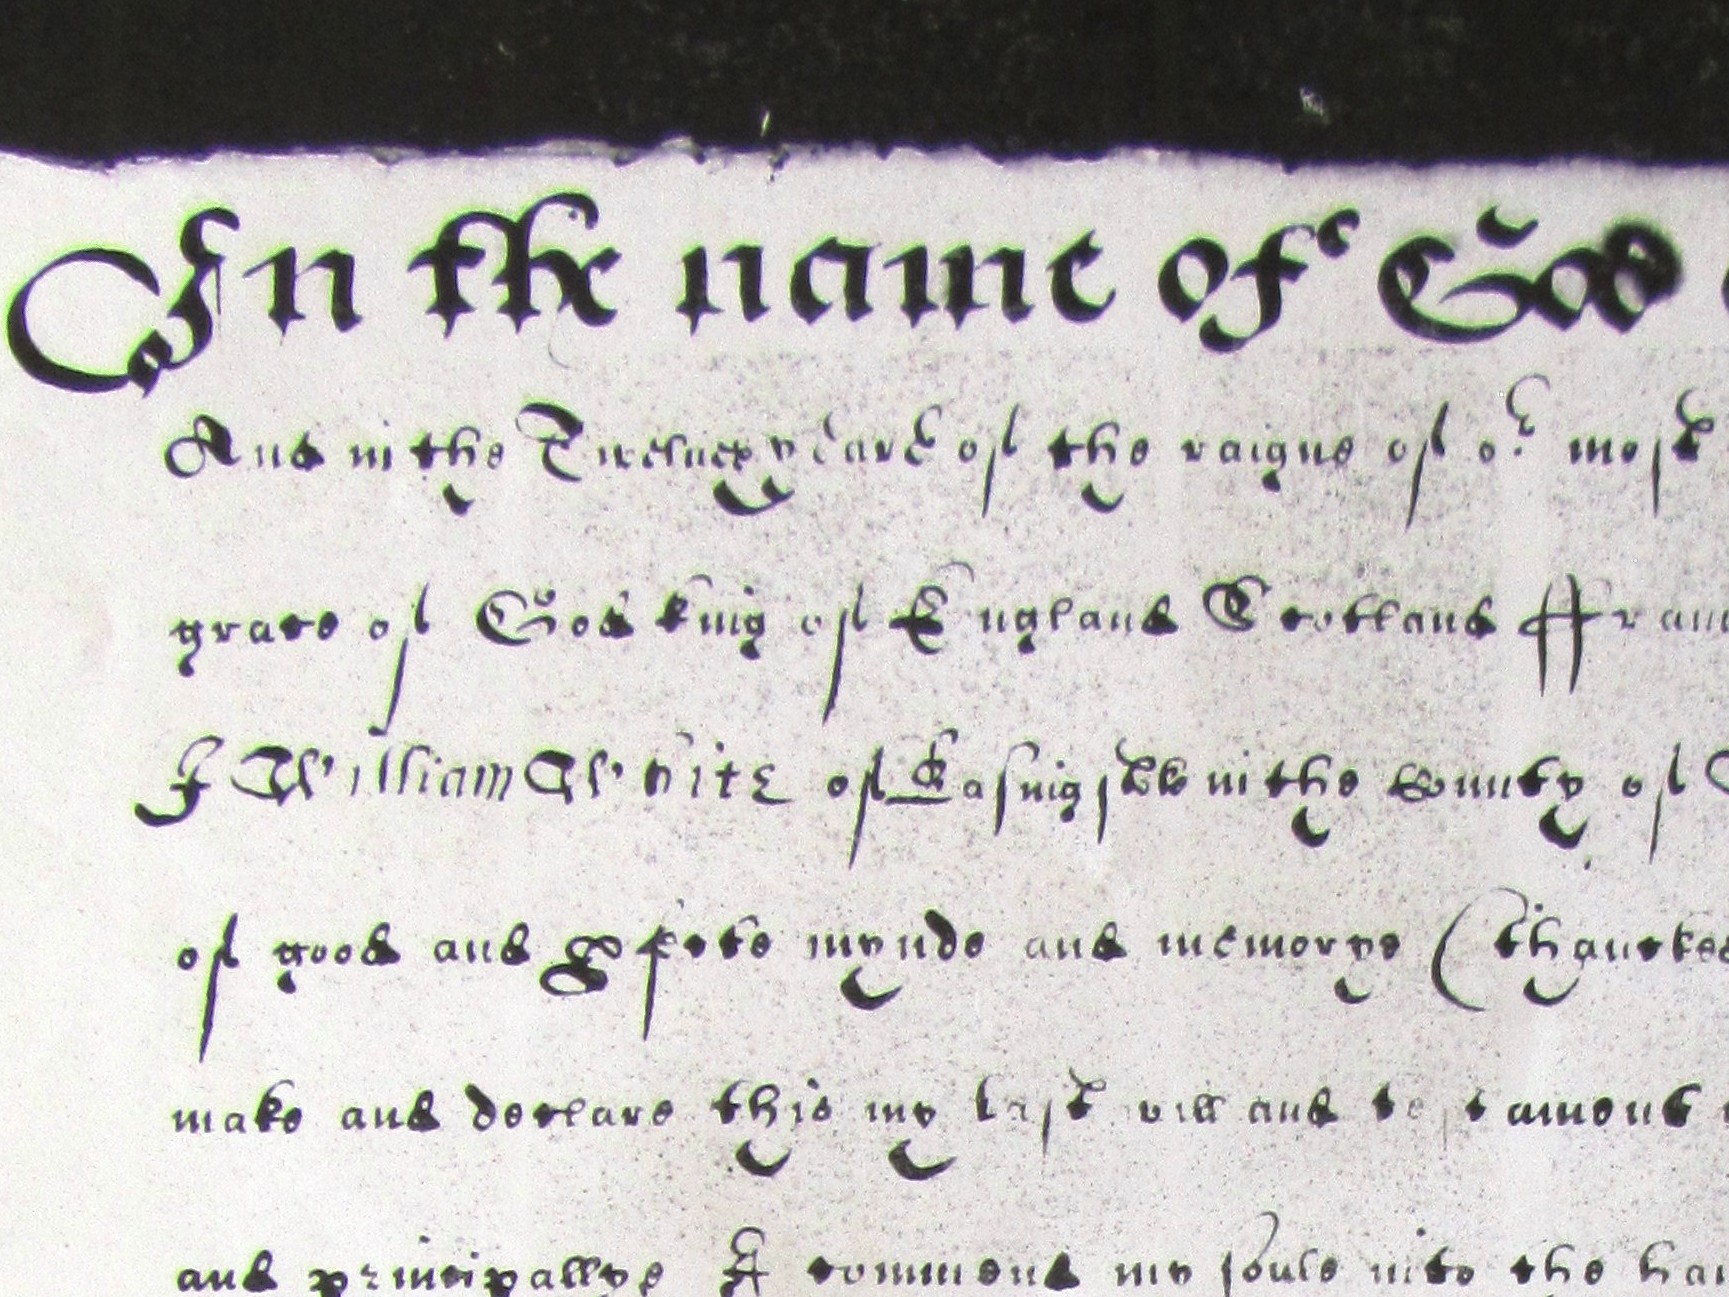 In the name of God
And in the Twelueth yeare of the raigne of or most
grace of God king of England Scotland ffran
I William White of in the County of
of good and pfecte mynde and memorye (thanckes
make and declare this my last will and testament
and principallye I commend my soule into the han